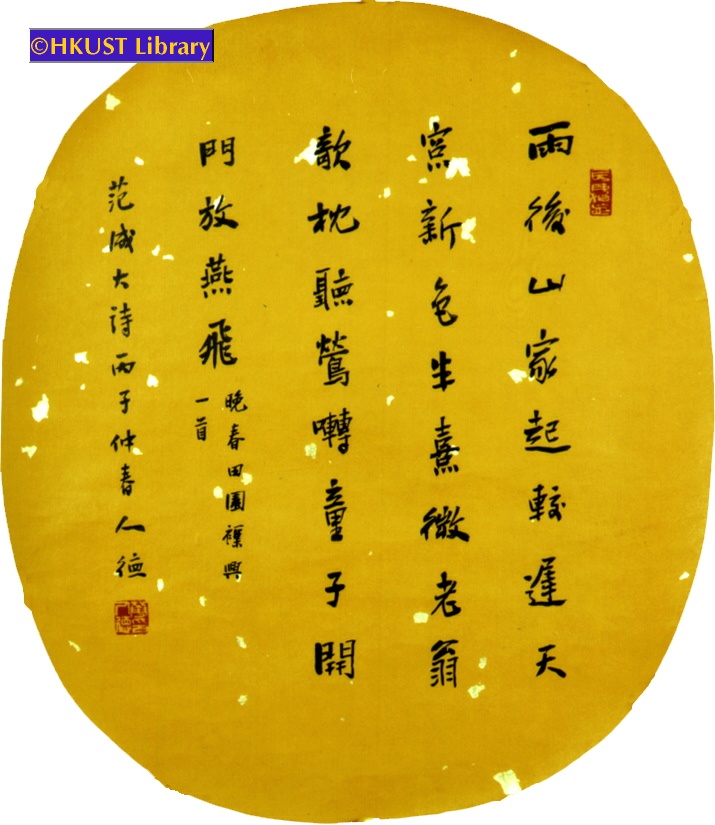 ©HKUST Library
雨後山家起較遲天
窓新色半熹微老翁
欹枕聽鶯囀童子開
門放燕飛
晚春田園襍興
一首
范成大詩丙子仲春人德